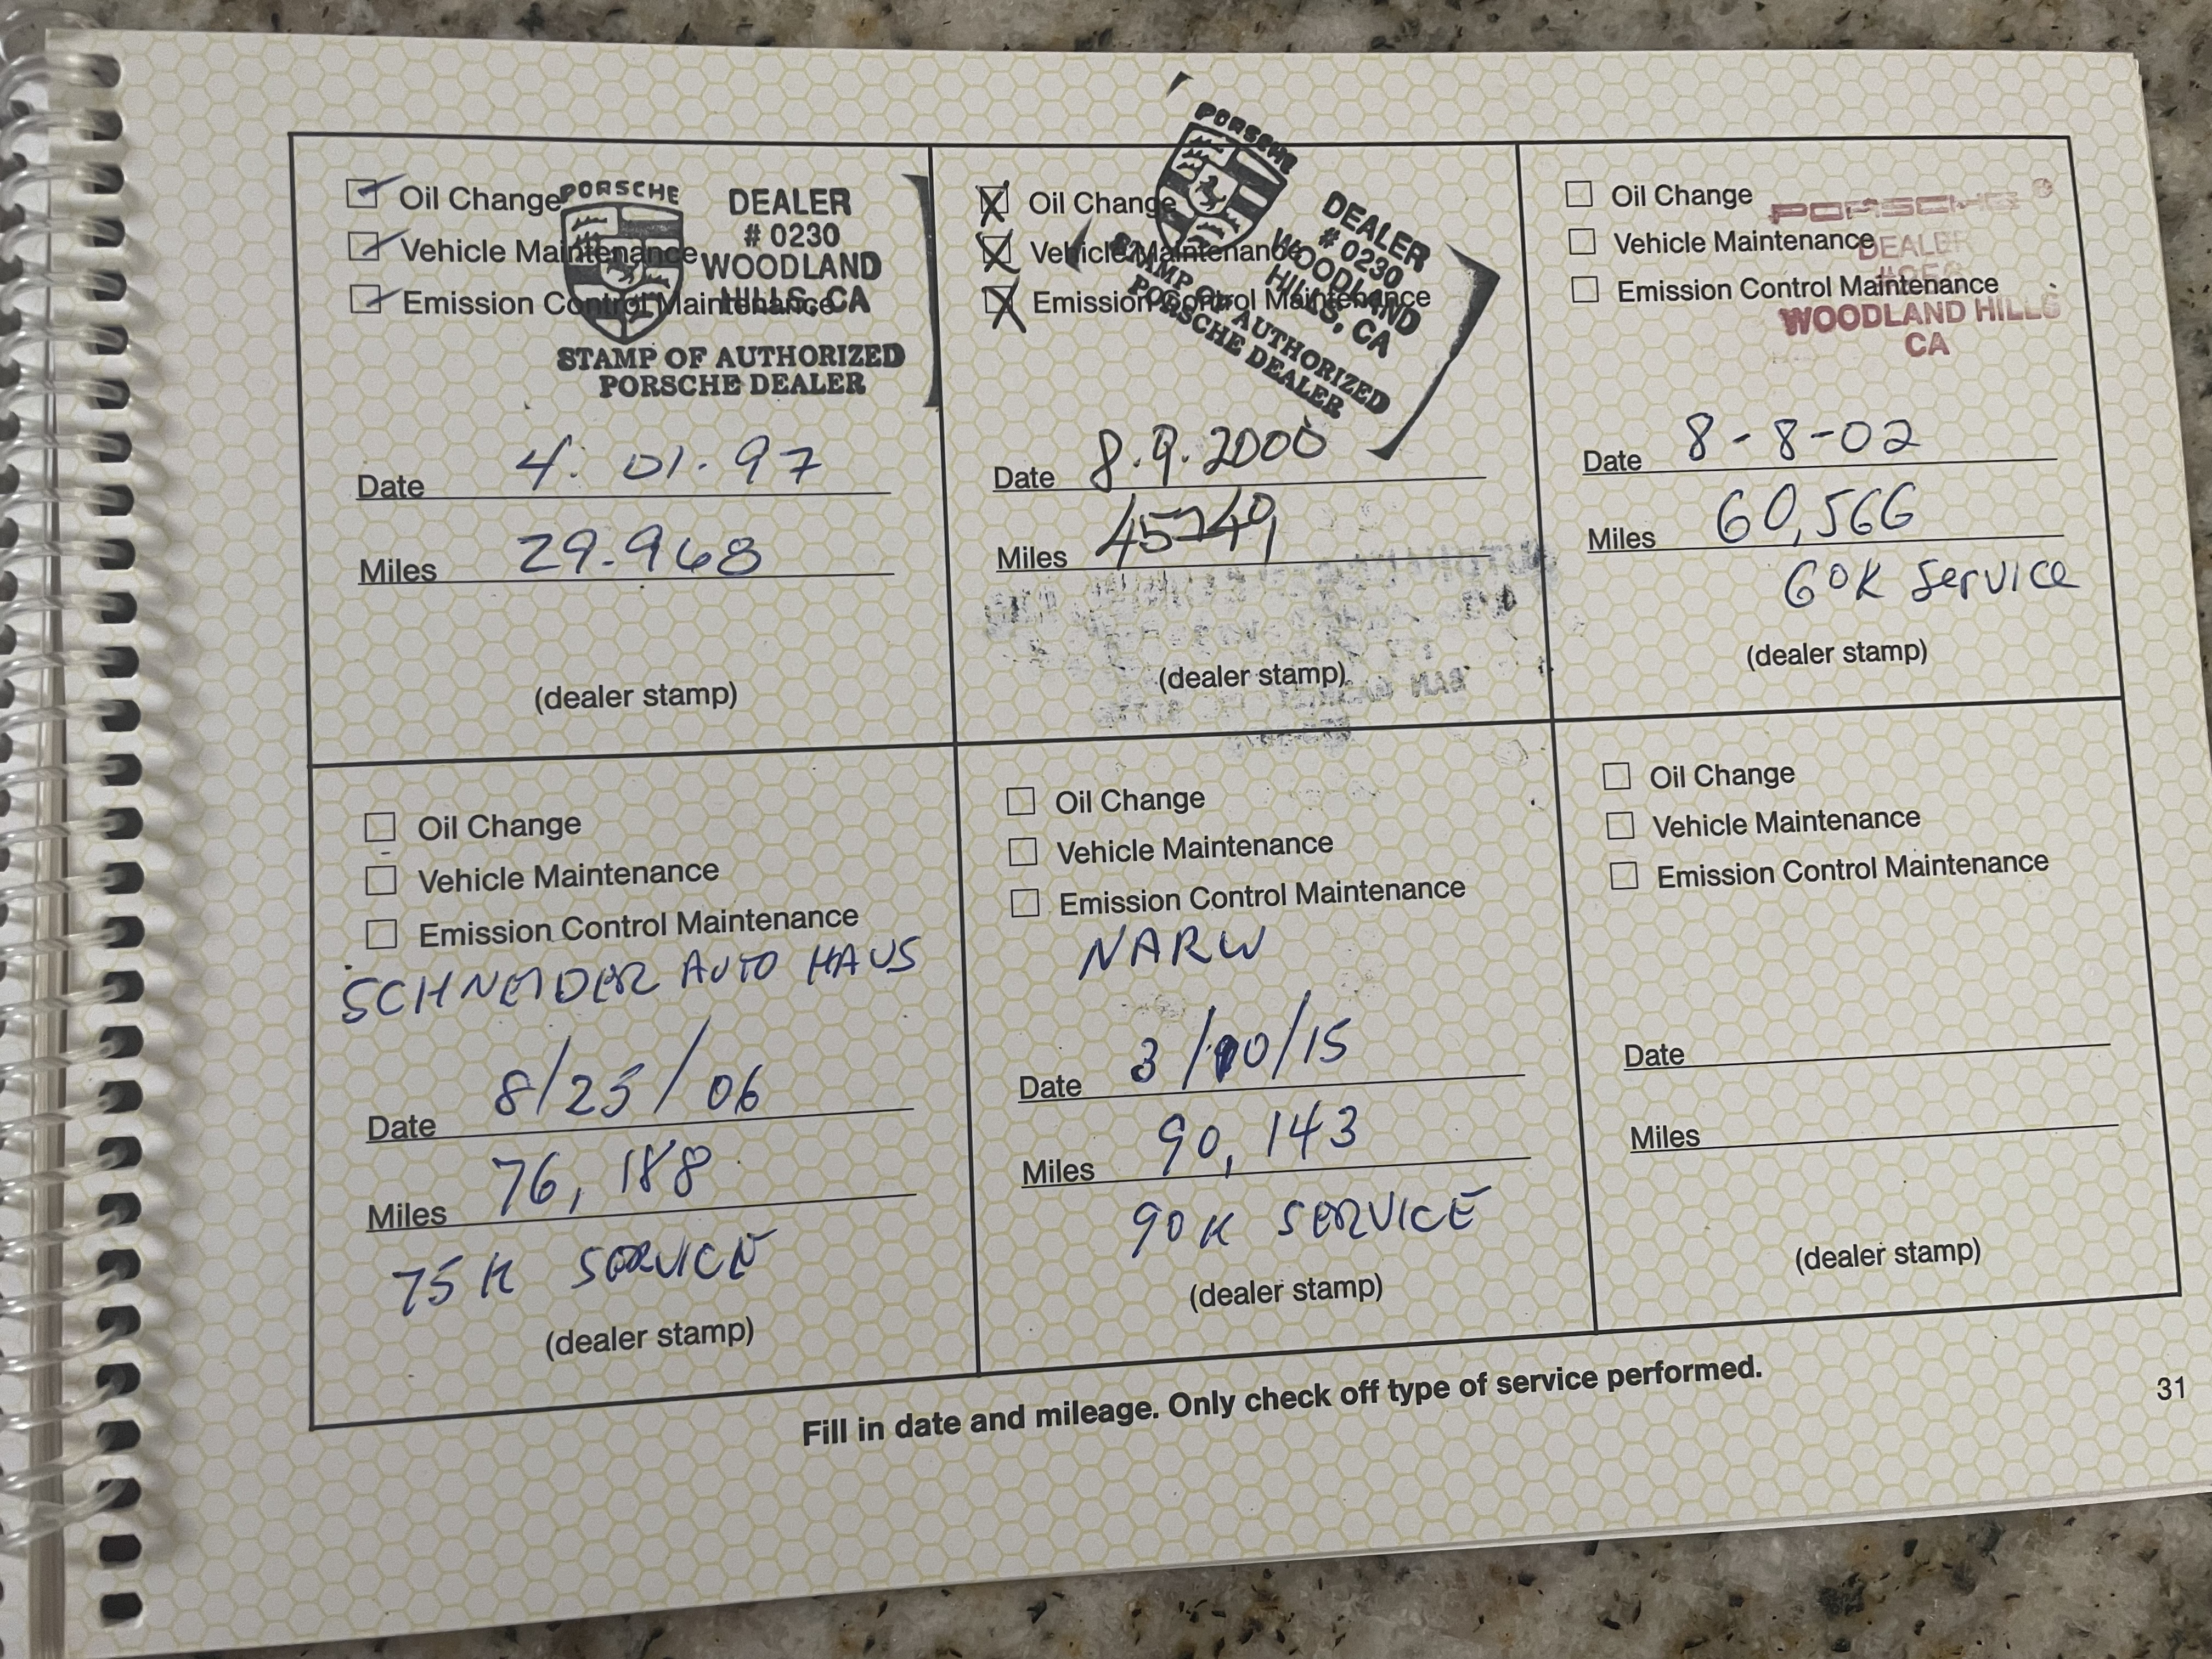 Oil Change
Vehicle Maintenance
Emission Control Maintenance
PORSCHE
DEALER
# 0230
WOODLAND
HILLS, CA
STAMP OF AUTHORIZED
PORSCHE DEALER
Date 4. 01. 97
Miles 29.968
(dealer stamp)
Oil Change
Vehicle Maintenance
Emission Control Maintenance
PORSCHE
DEALER
# 0230
WOODLAND
HILLS, CA
STAMP OF AUTHORIZED
PORSCHE DEALER
Date 8.9.2000
Miles
(dealer stamp)
Oil Change
Vehicle Maintenance
Emission Control Maintenance
PORSCHE
DEALER
WOODLAND HILLS
CA
Date 8-8-02
Miles 60,566
60K Service
(dealer stamp)
Oil Change
Vehicle Maintenance
Emission Control Maintenance
SCHNEIDER AUTO HAUS
Date 8/25/06
Miles 76,188
75K SERVICE
(dealer stamp)
Oil Change
Vehicle Maintenance
Emission Control Maintenance
NARW
Date 3/10/15
Miles 90,143
90K SERVICE
(dealer stamp)
Oil Change
Vehicle Maintenance
Emission Control Maintenance
Date
Miles
(dealer stamp)
Fill in date and mileage. Only check off type of service performed.
31